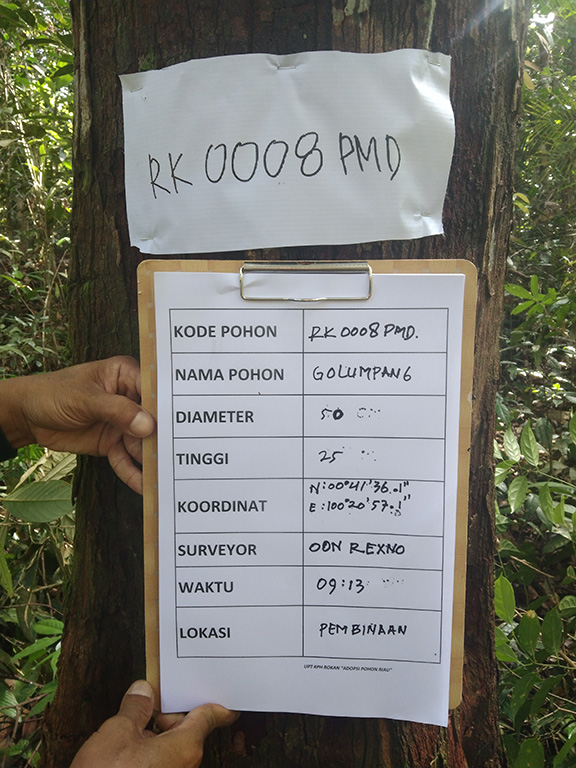 RK 0008 PMD
KODE POHON RK 0008 PMD.
NAMA POHON GOLUMPANG
DIAMETER 50
TINGGI 25
KOORDINAT N:00°41'36.1"
E:100°20'57.1"
SURVEYOR ODN REXNO
WAKTU 09:13
LOKASI PEMBINAAN
UPT KPH ROKAN "ADOPSI POHON RIAU"